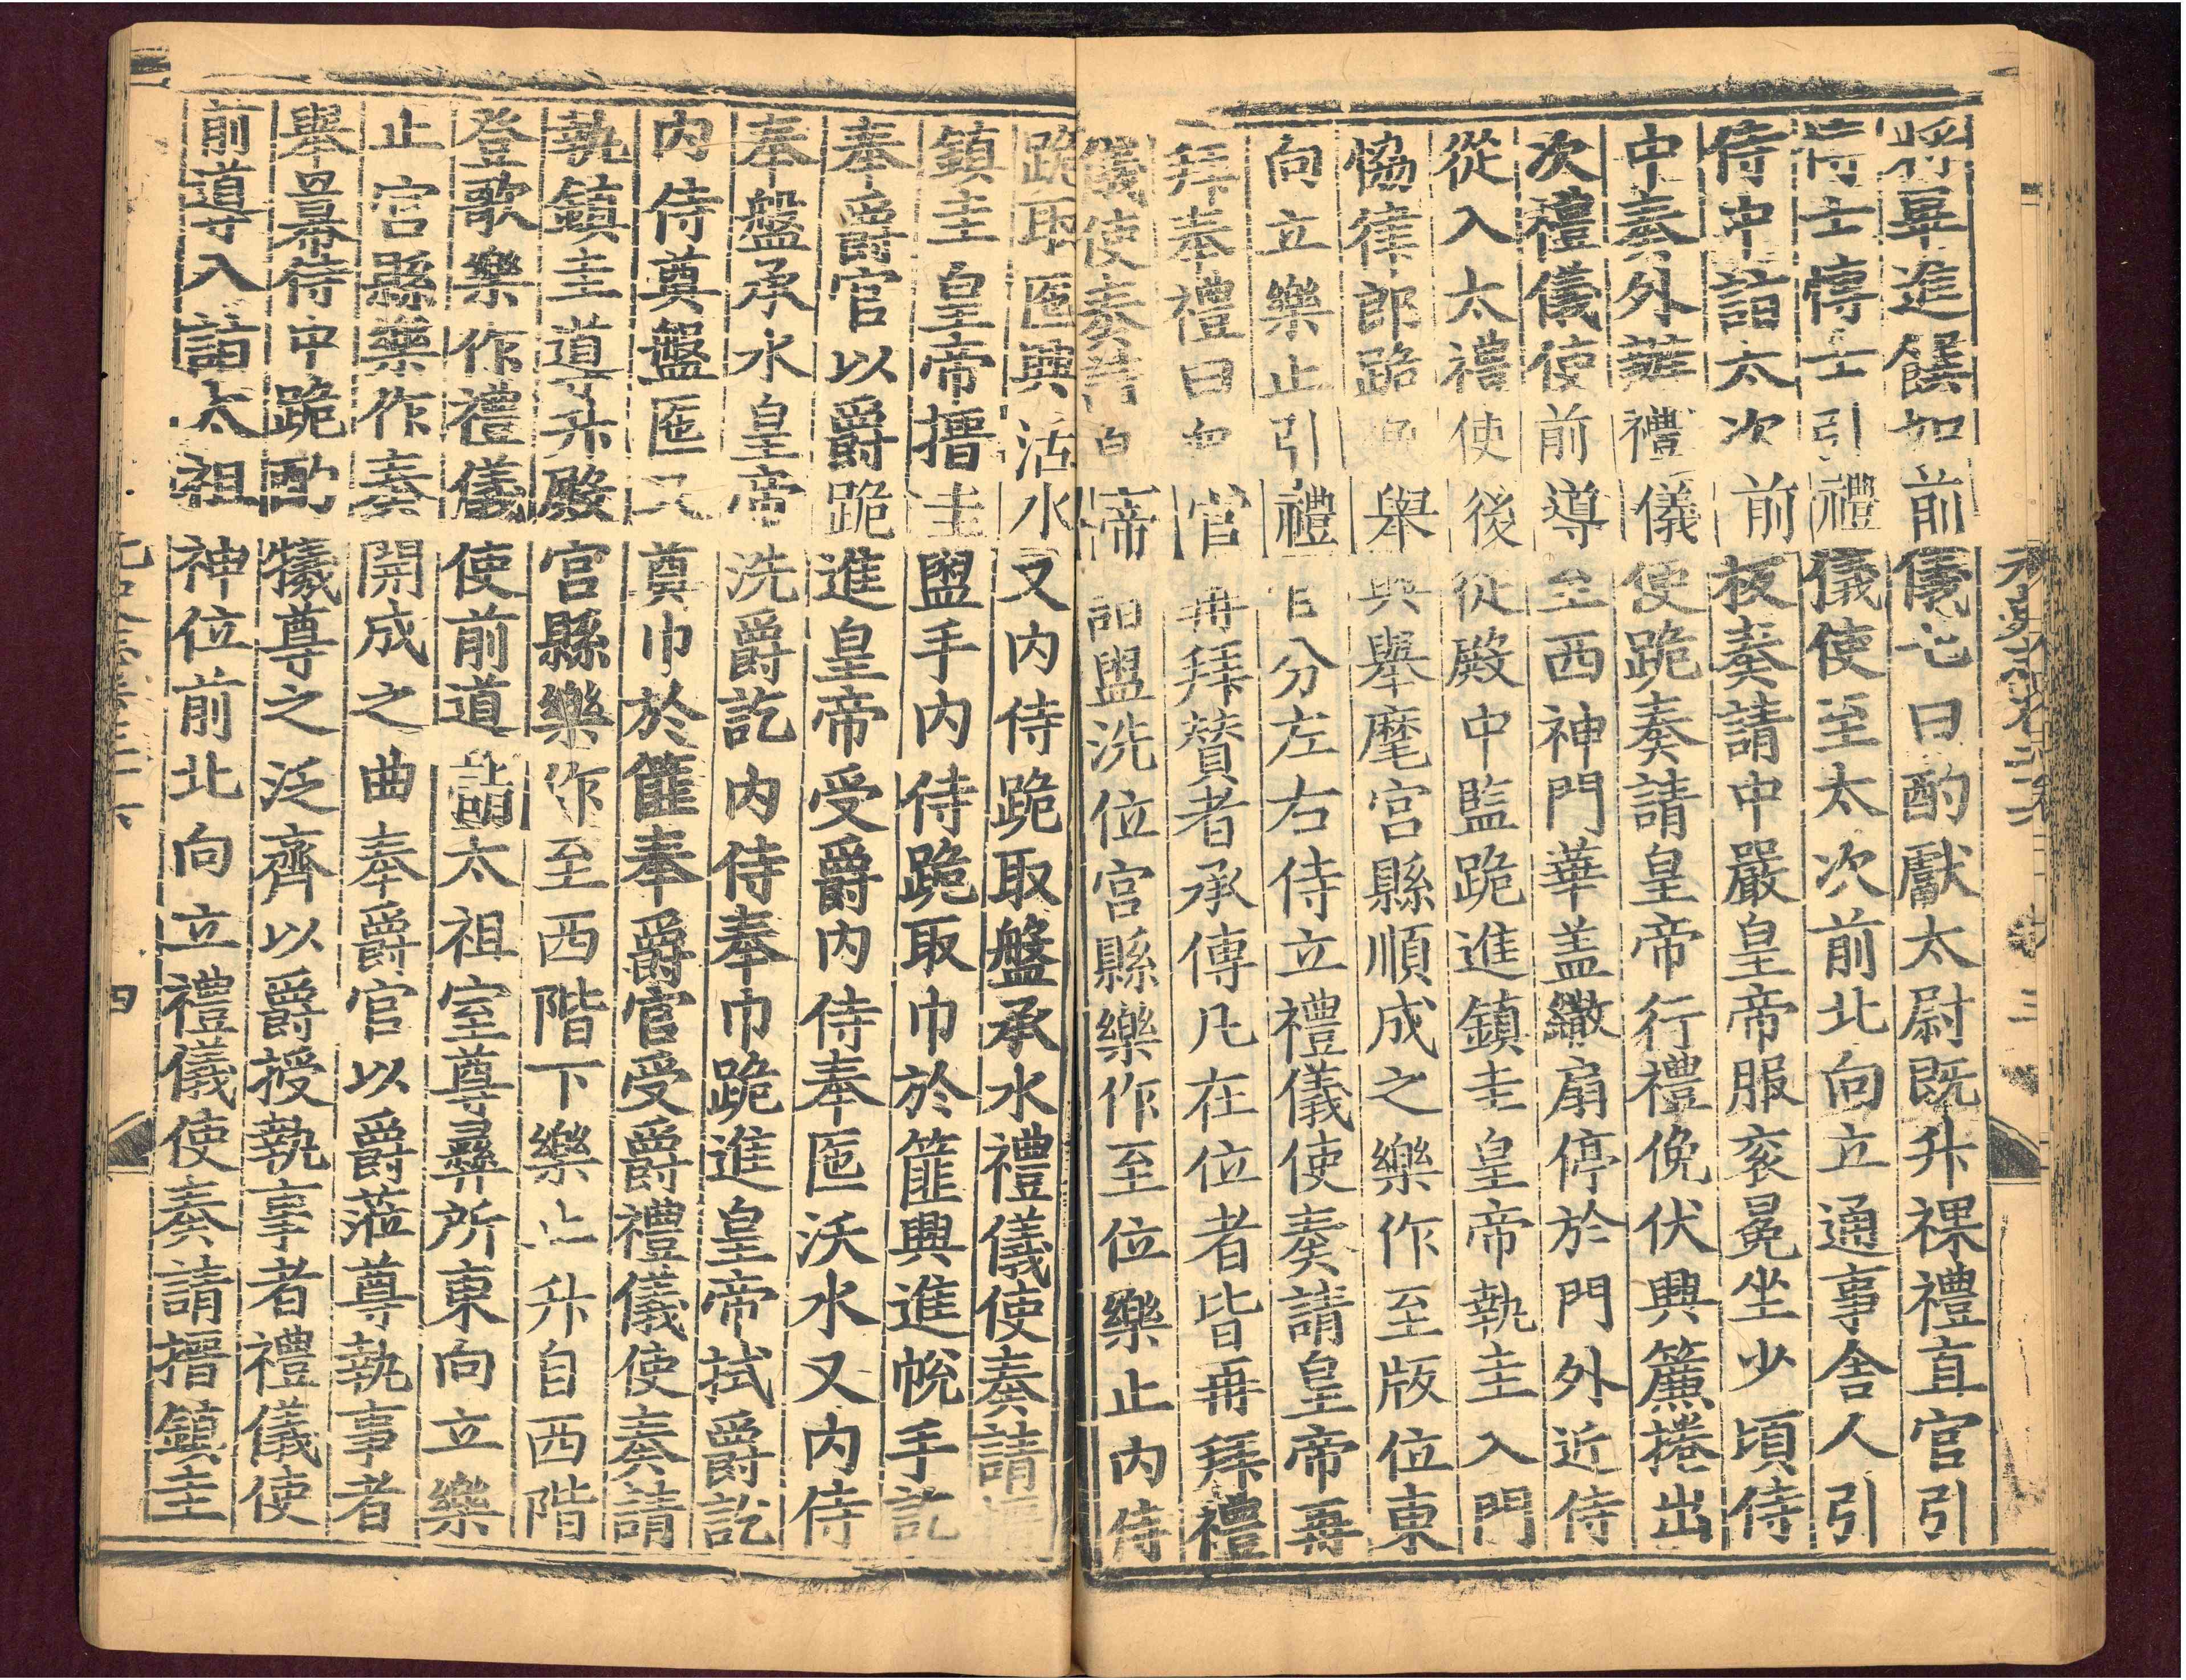 將畢進饌如前儀七曰酌獻太尉既升祼禮直官引
博士博士引禮儀使至太次前北向立通事舍人引
侍中詣太次前板奏請中嚴皇帝服衮冕坐少頃侍
中奏外辦禮儀使跪奏請皇帝行禮俛伏興簾捲出
次禮儀使前導至西神門華蓋繖扇停於門外近侍
從入太禮使後從殿中監跪進鎮圭皇帝執圭入門
協律郎跪俛舉興舉麾宮縣順成之樂作至版位東
向立樂止引禮官分左右侍立禮儀使奏請皇帝再
拜奉禮曰官再拜贊者承傳凡在位者皆再拜禮
儀使奏請皇帝詣盥洗位宮縣樂作至位樂止內侍
跪取匜興沃水又內侍跪取盤承水禮儀使奏請搢
鎮圭皇帝搢圭盥手內侍跪取巾於篚興進帨手訖
奉爵官以爵跪進皇帝受爵內侍奉匜沃水又內侍
奉盤承水皇帝洗爵訖內侍奉巾跪進皇帝拭爵訖
內侍奠盤匜又奠巾於篚奉爵官受爵禮儀使奏請
執鎮圭導升殿宮縣樂作至西階下樂止升自西階
登歌樂作禮儀使前導詣太祖室尊彝所東向立樂
止宮縣樂作奏開成之曲奉爵官以爵蒞尊執事者
舉冪侍中跪酌犧尊之泛齊以爵授執事者禮儀使
前導入詣太祖神位前北向立禮儀使奏請搢鎮圭
四